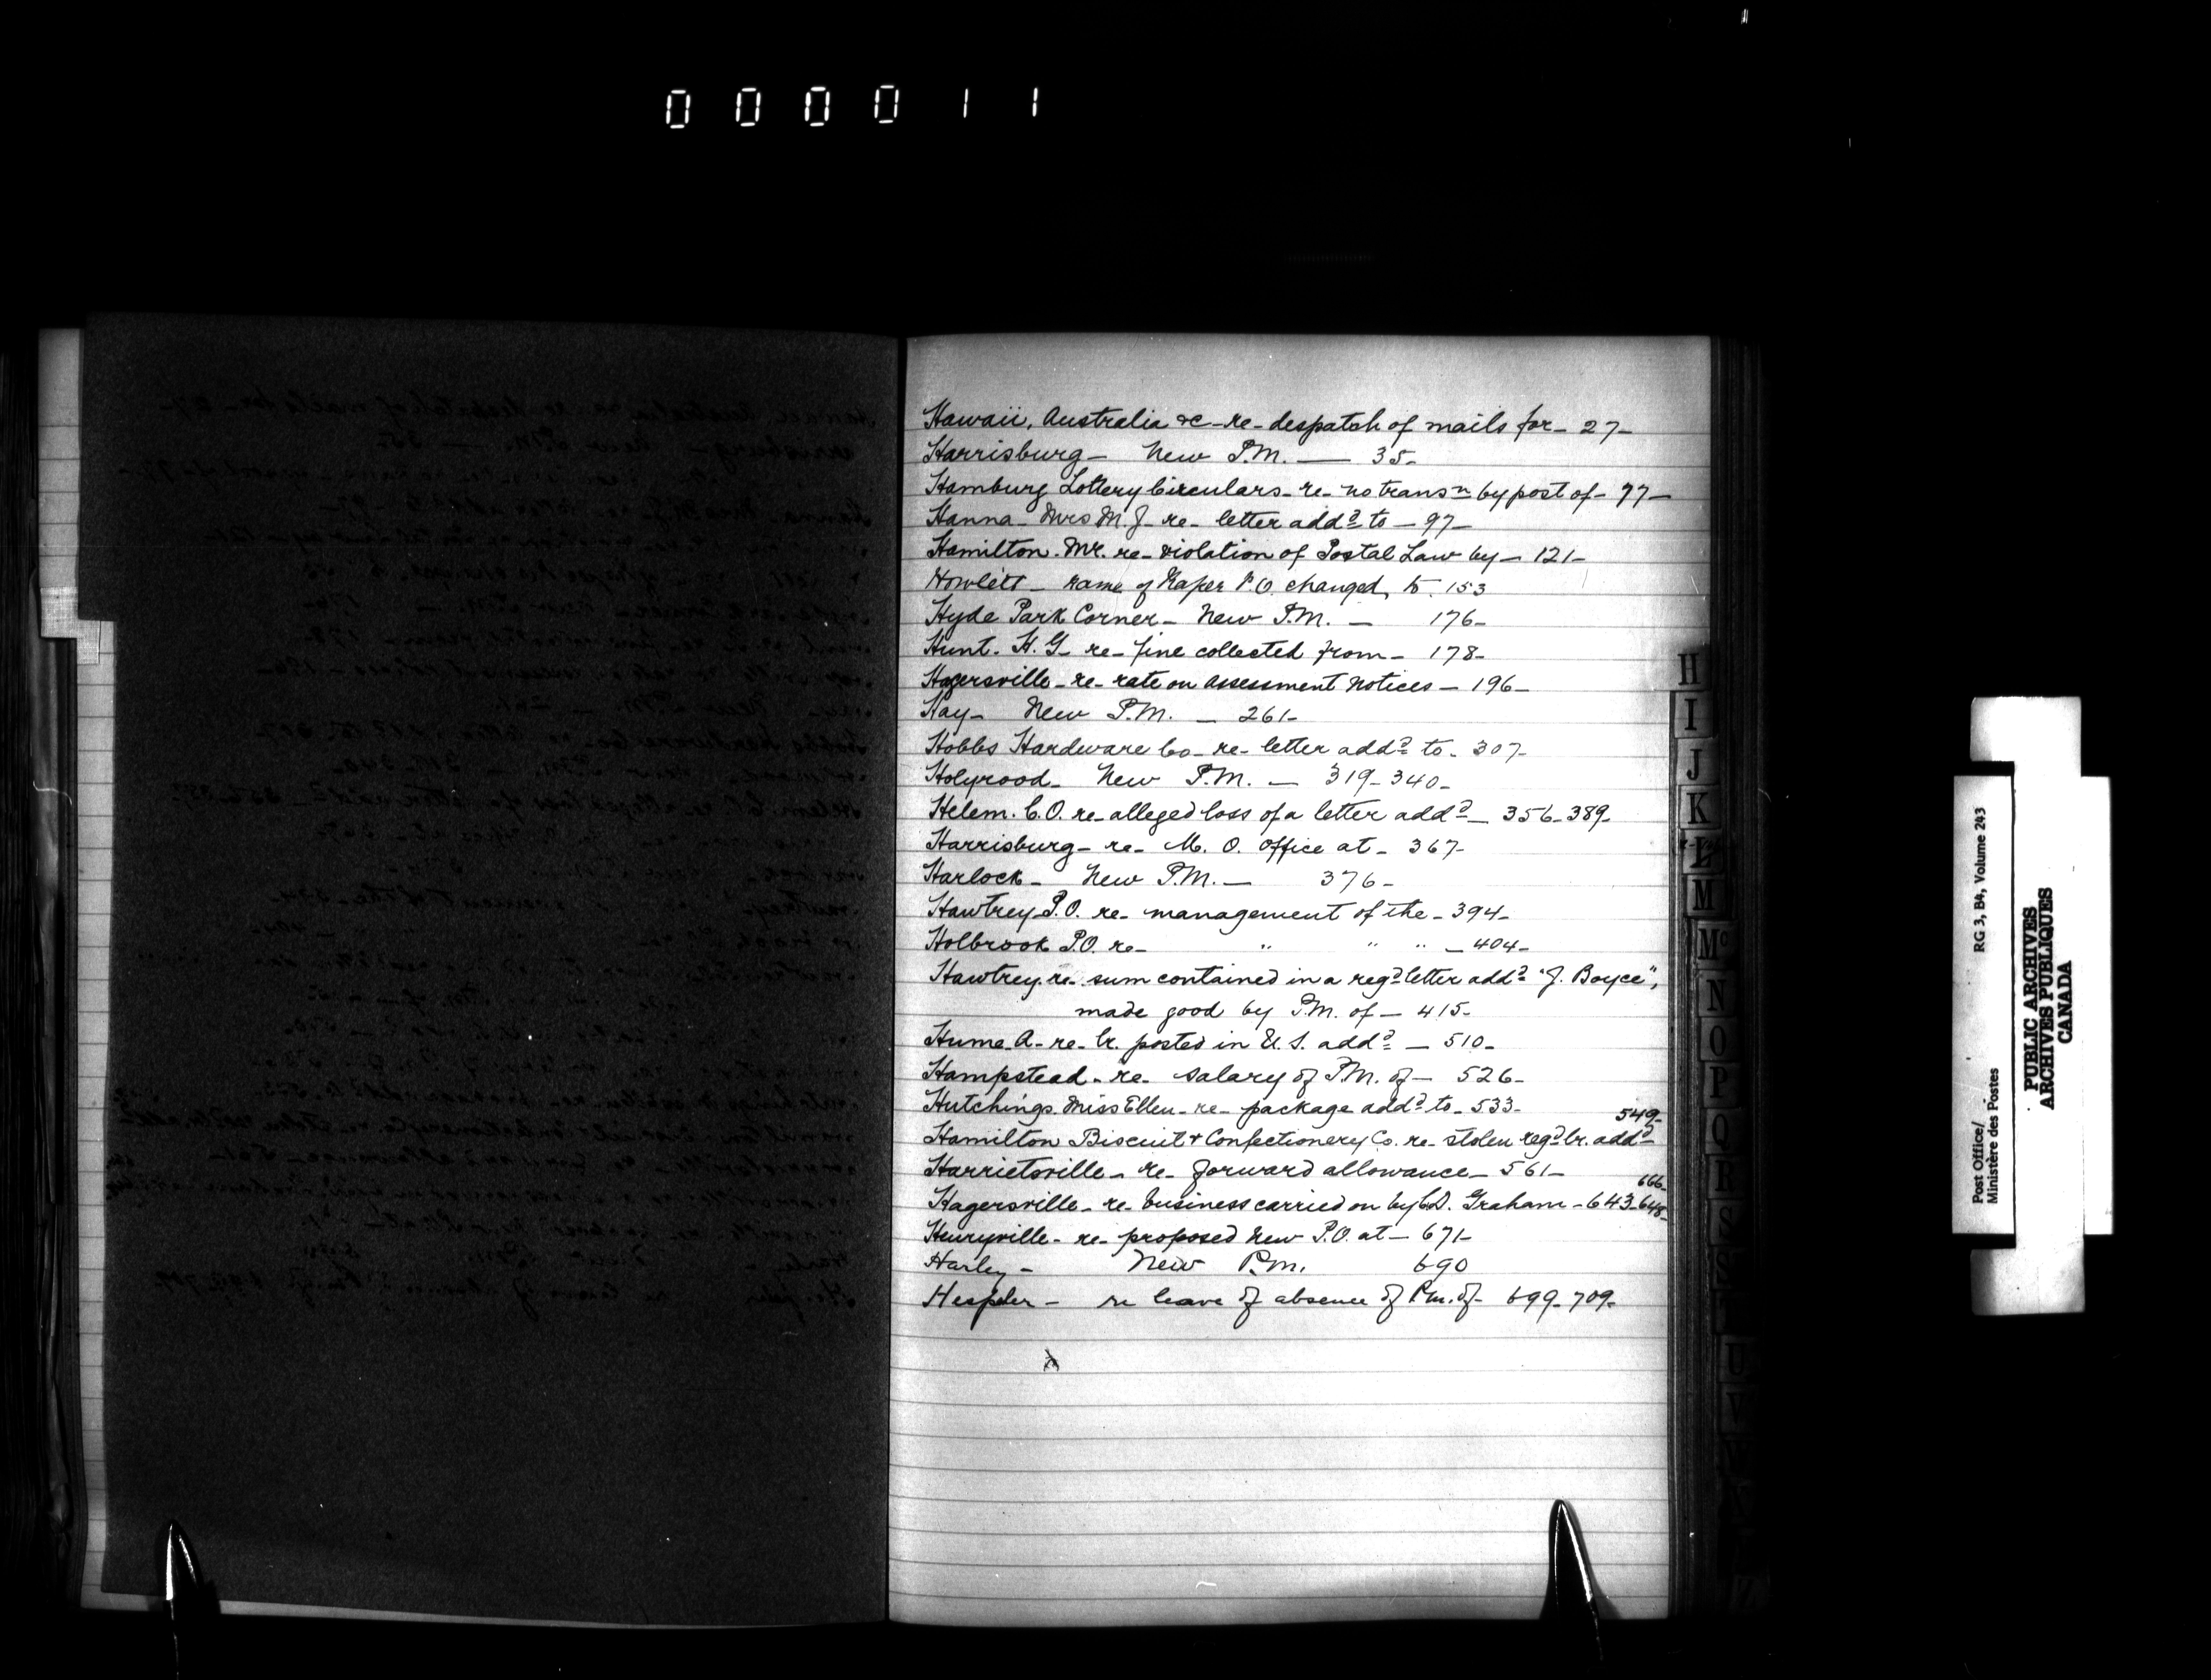 000011
Hawaii, Australia &c - re - despatch of mails for - 27 -
Harrisburg - New P.M. — 35 -
Hamburg Lottery Circulars - re - no transn by post of - 77 -
Hanna - Mrs M. J - re - letter addd to - 97 -
Hamilton. Mr. re - violation of Postal Law by - 121 -
Howlett - name of Raper P.O. changed, to. 153
Hyde Park Corner - New P.M. - 176 -
Hunt. H. G - re - fine collected from - 178 -
Hagersville - re - rate on assessment notices - 196 -
Hay - New P.M. - 261 -
Hobbs Hardware Co - re - letter addd to - 307 -
Holyrood - New P.M. - 319 - 340 -
Helem. C.O. re - alleged loss of a letter addd - 356 - 389 -
Harrisburg - re - M. O. Office at - 367 -
Harlock - New P.M. - 376 -
Hawtrey P.O. re - management of the - 394 -
Holbrook P.O. re - " " " - 404 -
Hawtrey. re - sum contained in a regd letter addd "J. Boyce",
made good by P.M. of - 415 -
Hume. A - re - lr. posted in U.S. addd - 510 -
Hampstead - re - salary of P.M. of - 526 -
Hutchings. Miss Ellen - re - package addd to - 533 -
549 -
Hamilton Biscuit & Confectionery Co. re - stolen regd lr. addd -
Harrietsville - re - forward allowance - 561 -
666 -
Hagersville - re - business carried on by C.D. Graham - 643 - 648 -
Henryville - re - proposed new P.O. at - 671 -
Harley - New P.M. 690
Hespeler - re leave of absence of P.M. of - 699 - 709 -
H
I
J
K
L
M
Mc
N
O
P
Q
R
S
T
U
V
W
Z
Post Office/
Ministère des Postes
RG 3, B4, Volume 243
PUBLIC ARCHIVES
ARCHIVES PUBLIQUES
CANADA